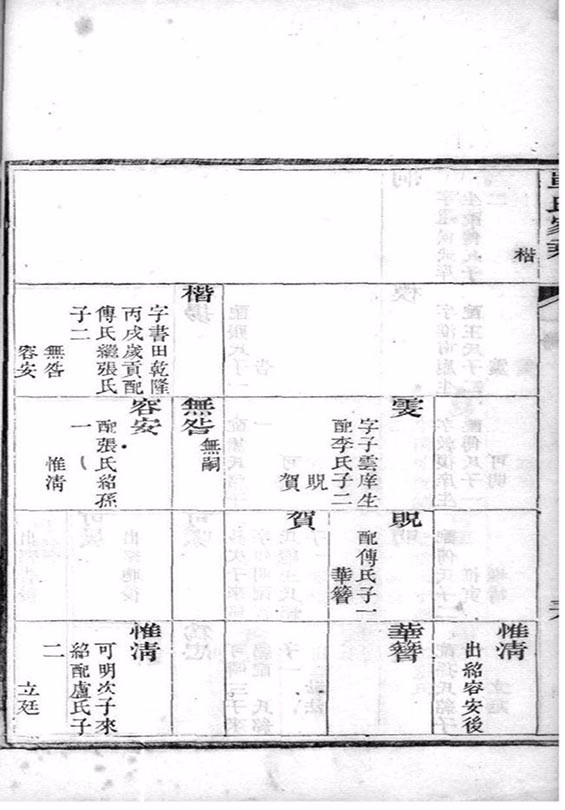 氏家乘
楷
楷
字書田乾隆
丙戌歲貢配
傅氏繼張氏
子二
無咎
容安
雯
字子雲庠生
配李氏子二
貺
賀
無咎
無嗣
容安
配張氏紹孫
一
惟清
貺
配傅氏子一
華簪
賀
惟清
出紹容安後
華簪
惟清
可明次子來
紹配盧氏子
二
立廷